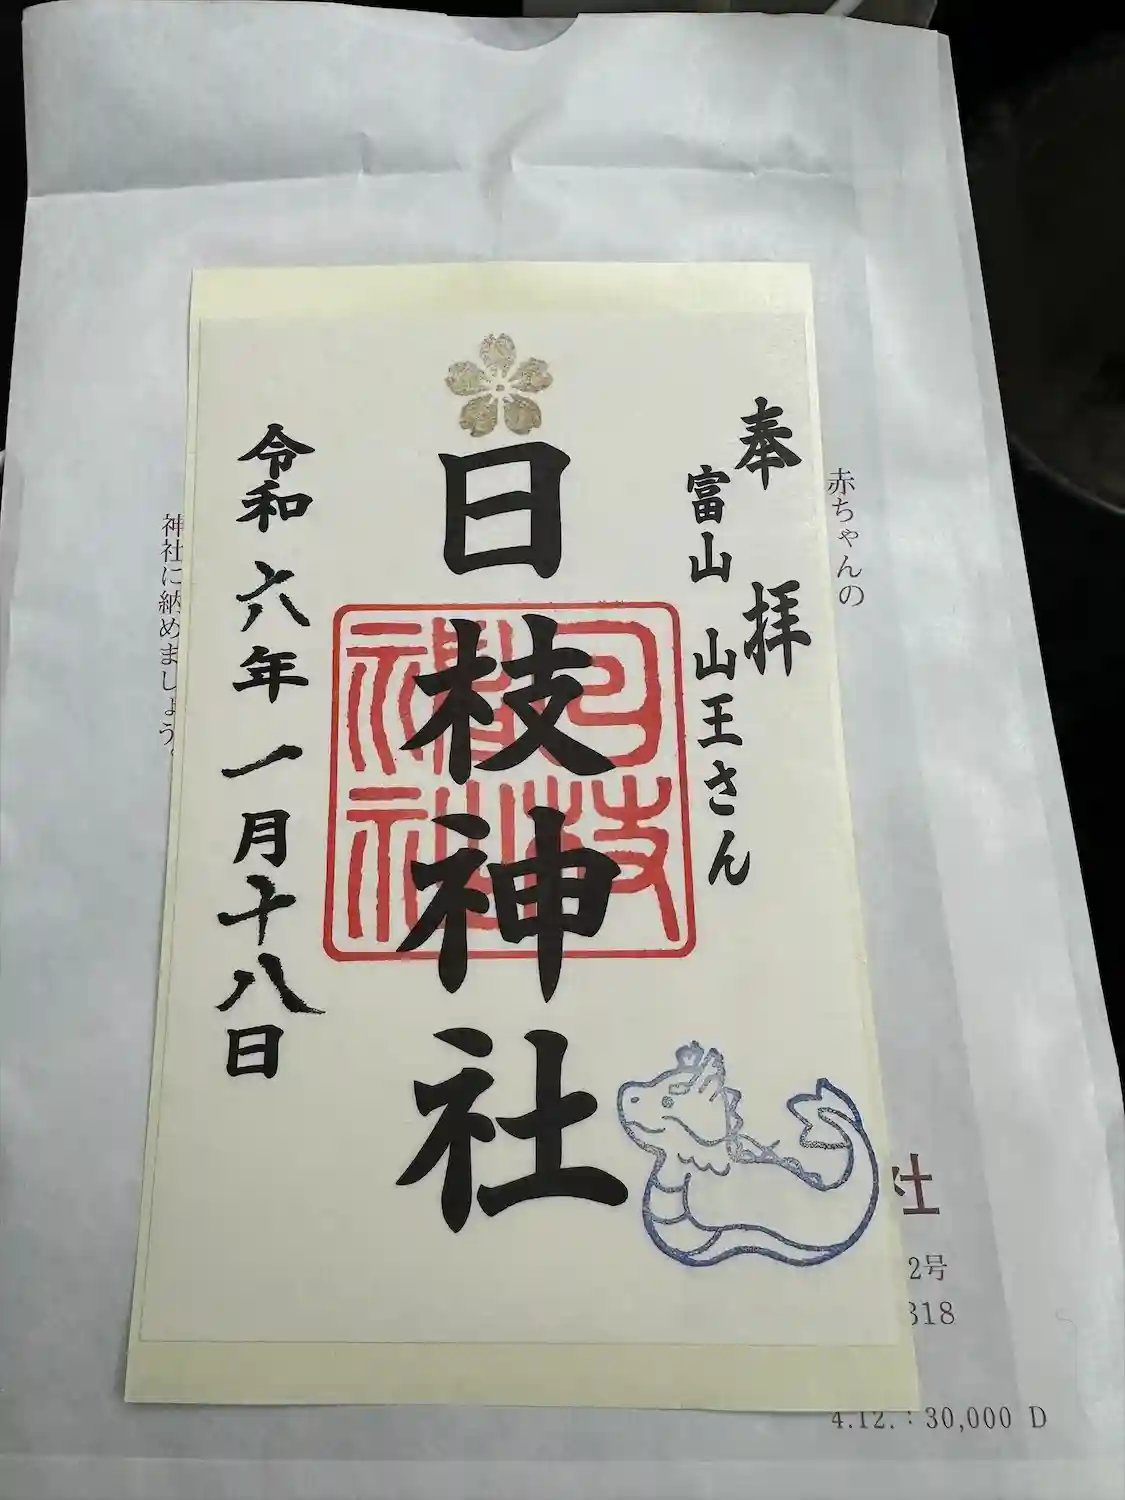 赤ちゃんの
奉拝
富山 山王さん
日枝神社
日枝神社
令和六年一月十八日
神社に納めましょう。
社
2号
318
4.12.：30,000 D